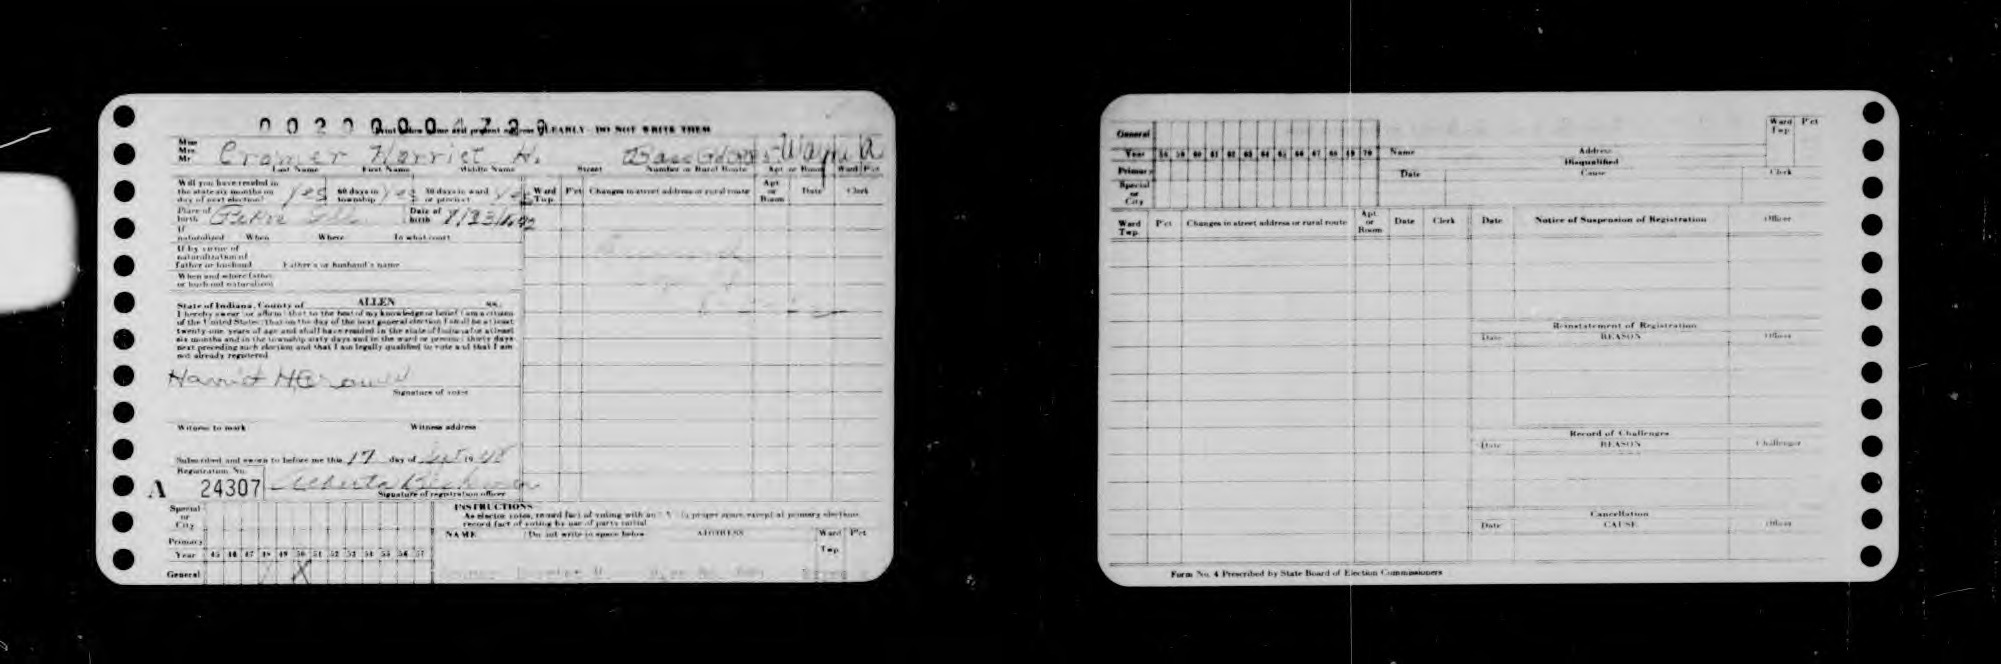 Print Own name and present address CLEARLY - DO NOT WRITE THEM
Miss
Mrs.
Mr.
Cramer Harriet H.
Wayne A
Last Name First Name Middle Name Street Number or Rural Route Apt or Room Ward Pct
Will you have resided in the state six months on day of next election? Yes 60 days in township Yes 30 days in ward or precinct Yes
Ward Twp. P'ct Changes in street address or rural route Apt. or Room Date Clerk
Place of birth Date of birth
If naturalized When Where In what court
If by virtue of naturalization of father or husband Father's or husband's name
When and where father or husband naturalized
State of Indiana, County of ALLEN ss.:
I hereby swear (or affirm) that to the best of my knowledge or belief I am a citizen
of the United States; that on the day of the next general election I shall be at least
twenty-one years of age and shall have resided in the state of Indiana for at least
six months and in the township sixty days and in the ward or precinct thirty days
next preceding such election and that I am legally qualified to vote and that I am
not already registered
Harriet H Cramer
Signature of voter
Witness to mark Witness address
Subscribed and sworn to before me this 17 day of 19 48
Registration No.
A 24307 Alberta
Signature of registration officer
Special or City
Primary
Year 45 46 47 48 49 50 51 52 53 54 55 56 57
General X
INSTRUCTIONS
As elector votes, record fact of voting with an X in proper space, except at primary elections
record fact of voting by use of party initial
NAME (Do not write in space below ADDRESS Ward Twp. P'ct
General
Year 58 59 60 61 62 63 64 65 66 67 68 69 70
Primary
Special or City
Name Address
Ward Twp P'ct
Disqualified
Date Cause Clerk
Ward Twp. P'ct Changes in street address or rural route Apt. or Room Date Clerk
Date Notice of Suspension of Registration Officer
Reinstatement of Registration
Date REASON Officer
Record of Challenges
Date REASON Challenger
Cancellation
Date CAUSE Officer
Form No. 4 Prescribed by State Board of Election Commissioners